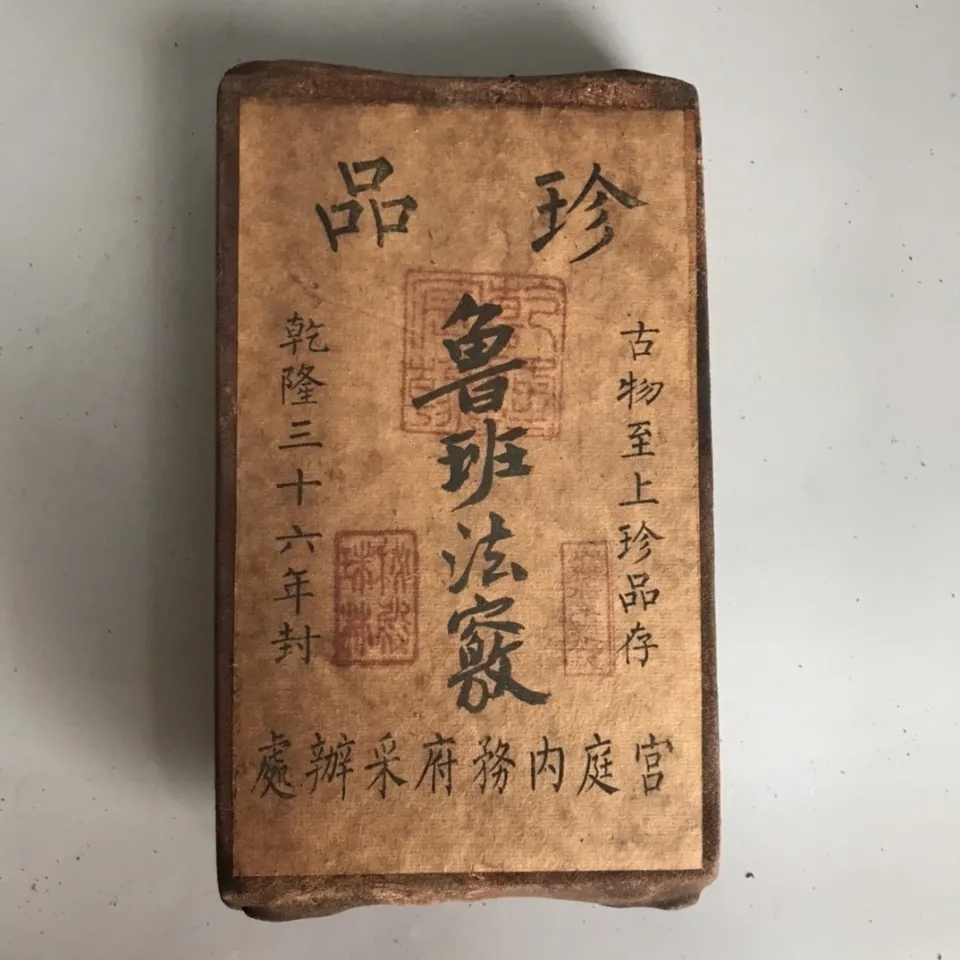 珍品
古物至上珍品存
魯班法竅
乾隆三十六年封
宮庭内務府采辦處